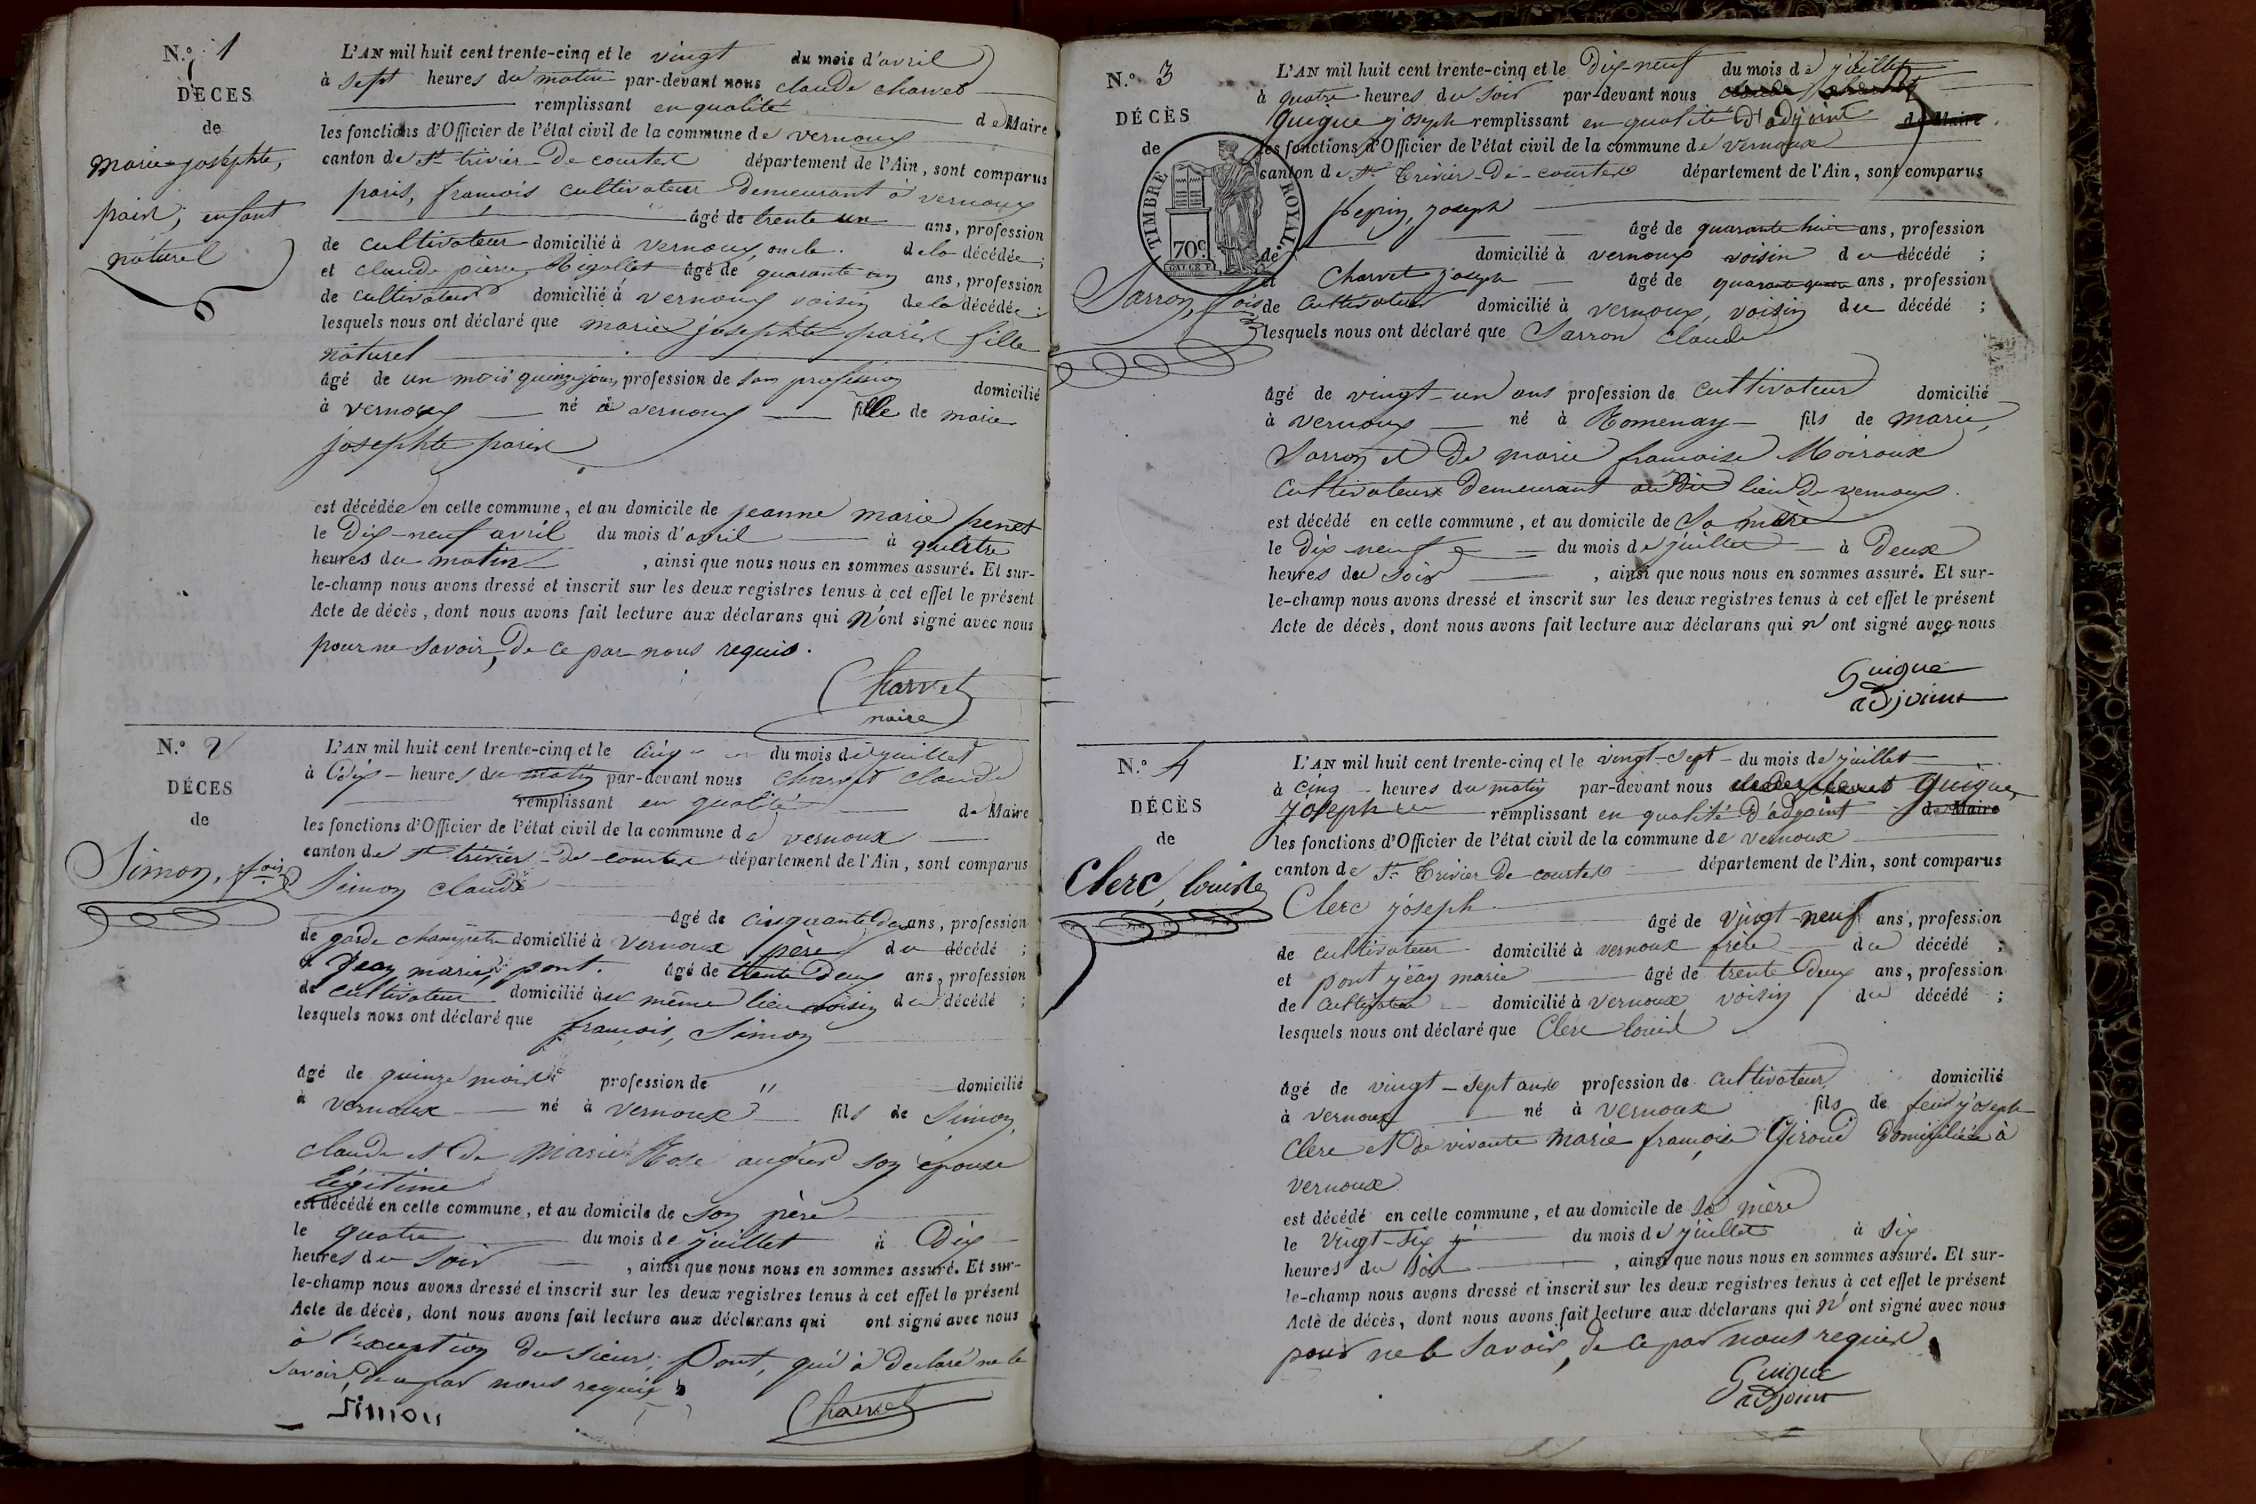 N.° 1
DÉCES
de
marie josephte,
enfant
naturel
L'AN mil huit cent trente-cinq et le vingt du mois d'avril
à sept heures du matin par-devant nous claude charvet
remplissant en qualité de Maire
les fonctions d'Officier de l'état civil de la commune de vernoux
canton de St trivier-de-courtes département de l'Ain, sont comparus
françois cultivateur demeurant à vernoux
âgé de trente un ans, profession
de cultivateur domicilié à vernoux, oncle de la décédée;
et claude pierre Rigollet âgé de quarante ans, profession
de cultivateur domicilié à vernoux voisin de la décédée;
lesquels nous ont déclaré que marie josephte fille
naturel
âgé de un mois quinze jours profession de san profession domicilié
à vernoux né à vernoux fille de marie
josephte
est décédée en cette commune, et au domicile de jeanne marie penet
le dix-neuf avril du mois d'avril à quatre
heures du matin, ainsi que nous nous en sommes assuré. Et sur-
le-champ nous avons dressé et inscrit sur les deux registres tenus à cet effet le présent
Acte de décès, dont nous avons fait lecture aux déclarans qui n'ont signé avec nous
pour ne savoir, de ce par nous requis.
Charvet
maire
N.° 2
DÉCES
de
Simon, fois
L'AN mil huit cent trente-cinq et le cinq du mois de juillet
à dix heures du matin par-devant nous charvet claude
remplissant en qualité de Maire
les fonctions d'Officier de l'état civil de la commune de vernoux
canton de St trivier-de-courtes département de l'Ain, sont comparus
Simon claude
âgé de cinquante deux ans, profession
de garde champetre domicilié à vernoux pere du décédé;
et jean marie, pont. âgé de trente deux ans, profession
de cultivateur domicilié au même lieu voisin du décédé;
lesquels nous ont déclaré que françois, Simon
âgé de quinze mois profession de " domicilié
à vernoux né à vernoux fils de Simon,
claude et de Marie Rose son épouse
légitime
est décédé en cette commune, et au domicile de son père
le quatre du mois de juillet à dix
heures du soir, ainsi que nous nous en sommes assuré. Et sur-
le-champ nous avons dressé et inscrit sur les deux registres tenus à cet effet le présent
Acte de décès, dont nous avons fait lecture aux déclarans qui ont signé avec nous
à l'exception du sieur, Pont, qui à declaré ne le
savoir, de ce par nous requis
Simon
Charvet
N.° 3
DÉCÈS
de
Sarron, fois
TIMBRE ROYAL
70c
L'AN mil huit cent trente-cinq et le dix-neuf du mois de juillet
à quatre heures du soir par-devant nous
Guigue joseph remplissant en qualité d'adjoint de Maire
les fonctions d'Officier de l'état civil de la commune de vernoux
canton de St Trivier-de-courtes département de l'Ain, sont comparus
pepin, joseph
âgé de quarante huit ans, profession
de domicilié à vernoux voisin du décédé;
et Charvet joseph âgé de quarante quatre ans, profession
de cultivateur domicilié à vernoux, voisin du décédé;
lesquels nous ont déclaré que Sarron claude
âgé de vingt-un ans profession de cultivateur domicilié
à vernoux né à Romenay fils de marie,
Sarron et de marie francoise Moiroux
cultivateurs demeurant au dit lieu de vernoux.
est décédé en cette commune, et au domicile de sa mère
le dix neuf du mois de juillet à deux
heures du soir, ainsi que nous nous en sommes assuré. Et sur-
le-champ nous avons dressé et inscrit sur les deux registres tenus à cet effet le présent
Acte de décès, dont nous avons fait lecture aux déclarans qui n'ont signé avec nous
Guigue
adjoint
N.° 4
DÉCÈS
de
Clerc, louis
L'AN mil huit cent trente-cinq et le vingt-sept du mois de juillet
à cinq heures du matin par-devant nous Guigue,
joseph remplissant en qualité d'adjoint de Maire
les fonctions d'Officier de l'état civil de la commune de vernoux
canton de St Trivier de courtes département de l'Ain, sont comparus
Clerc joseph
âgé de vingt-neuf ans, profession
de cultivateur domicilié à vernoux frère du décédé;
et pont jean marie âgé de trente deux ans, profession
de cultivateur domicilié à vernoux voisin du décédé;
lesquels nous ont déclaré que Clerc louis
âgé de vingt-sept ans profession de cultivateur domicilié
à vernoux né à vernoux fils de feu joseph
Clerc et de vivante marie françoise Giroud domiciliée à
vernoux
est décédé en cette commune, et au domicile de sa mère
le vingt-six du mois de juillet à six
heures du soir, ainsi que nous nous en sommes assuré. Et sur-
le-champ nous avons dressé et inscrit sur les deux registres tenus à cet effet le présent
Acte de décès, dont nous avons fait lecture aux déclarans qui n'ont signé avec nous
pour ne le savoir, de ce par nous requis.
Guigue
adjoint